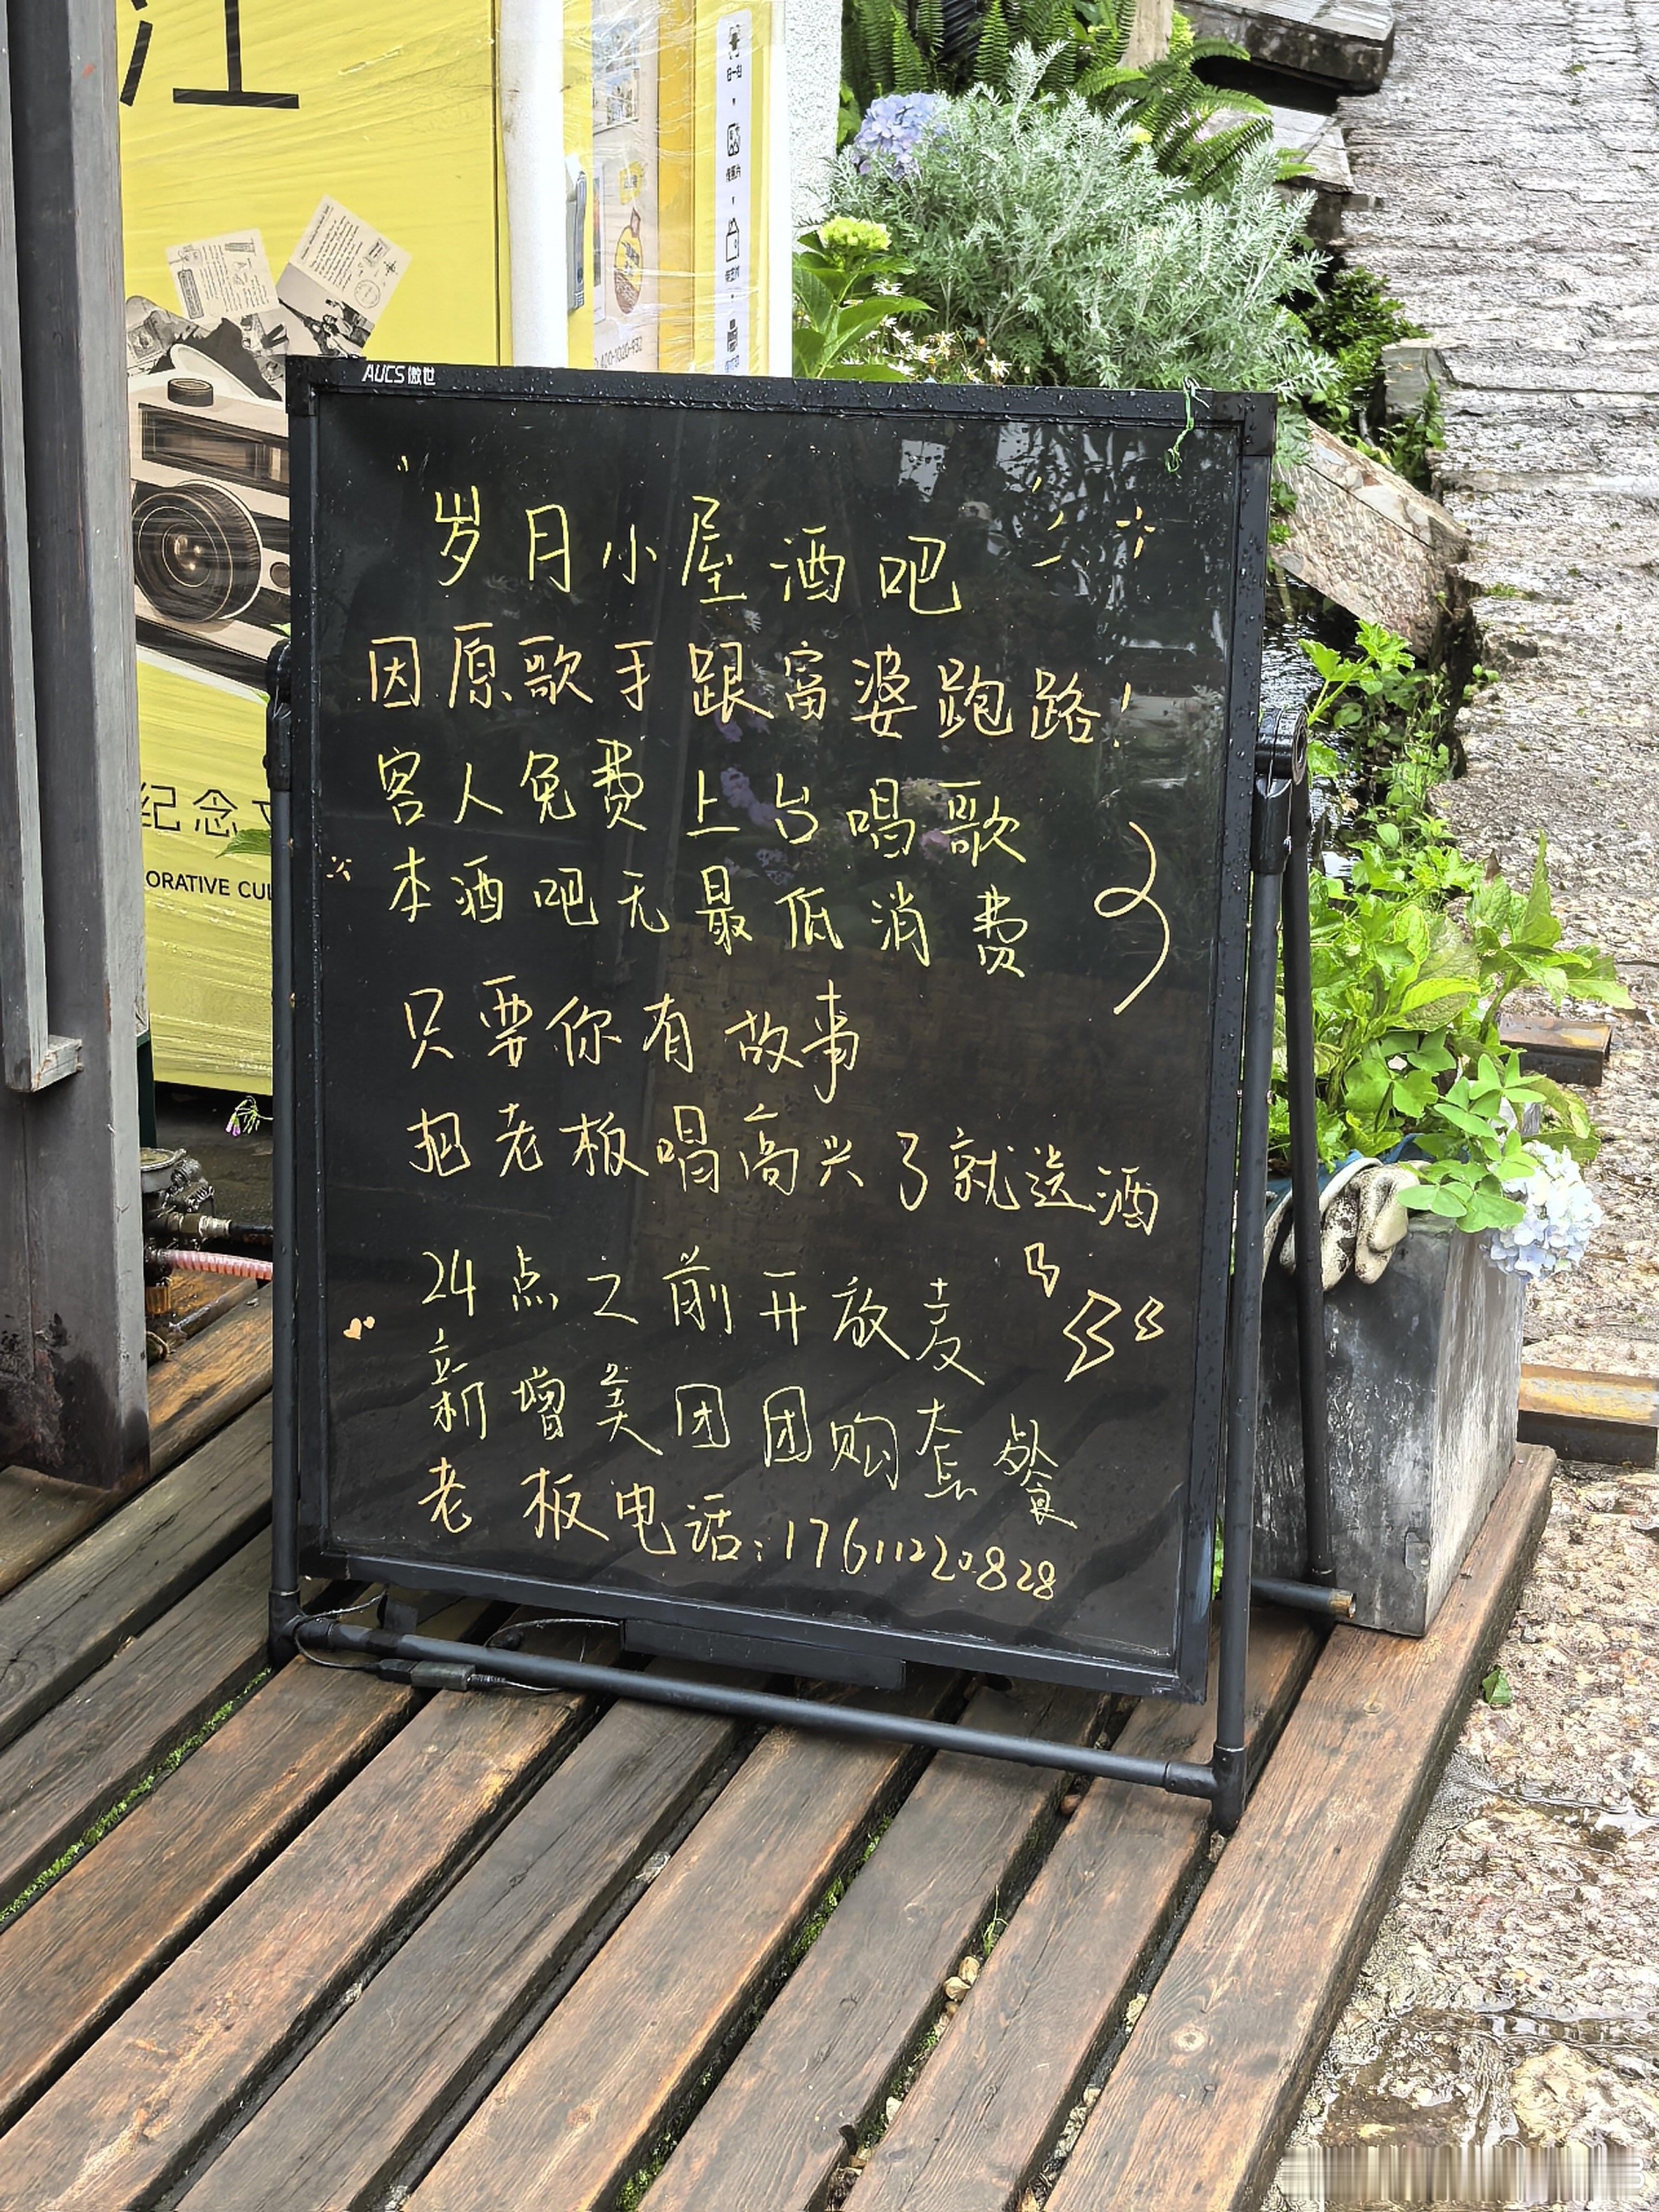 江
扫一扫
400-1020-832
AUCS傲世
岁月小屋酒吧
因原歌手跟富婆跑路!
客人免费上台唱歌
本酒吧无最低消费
只要你有故事
把老板唱高兴了就送酒
24点之前开放麦
新增美团团购套餐
老板电话:17611220828
纪念
ORATIVE CUL